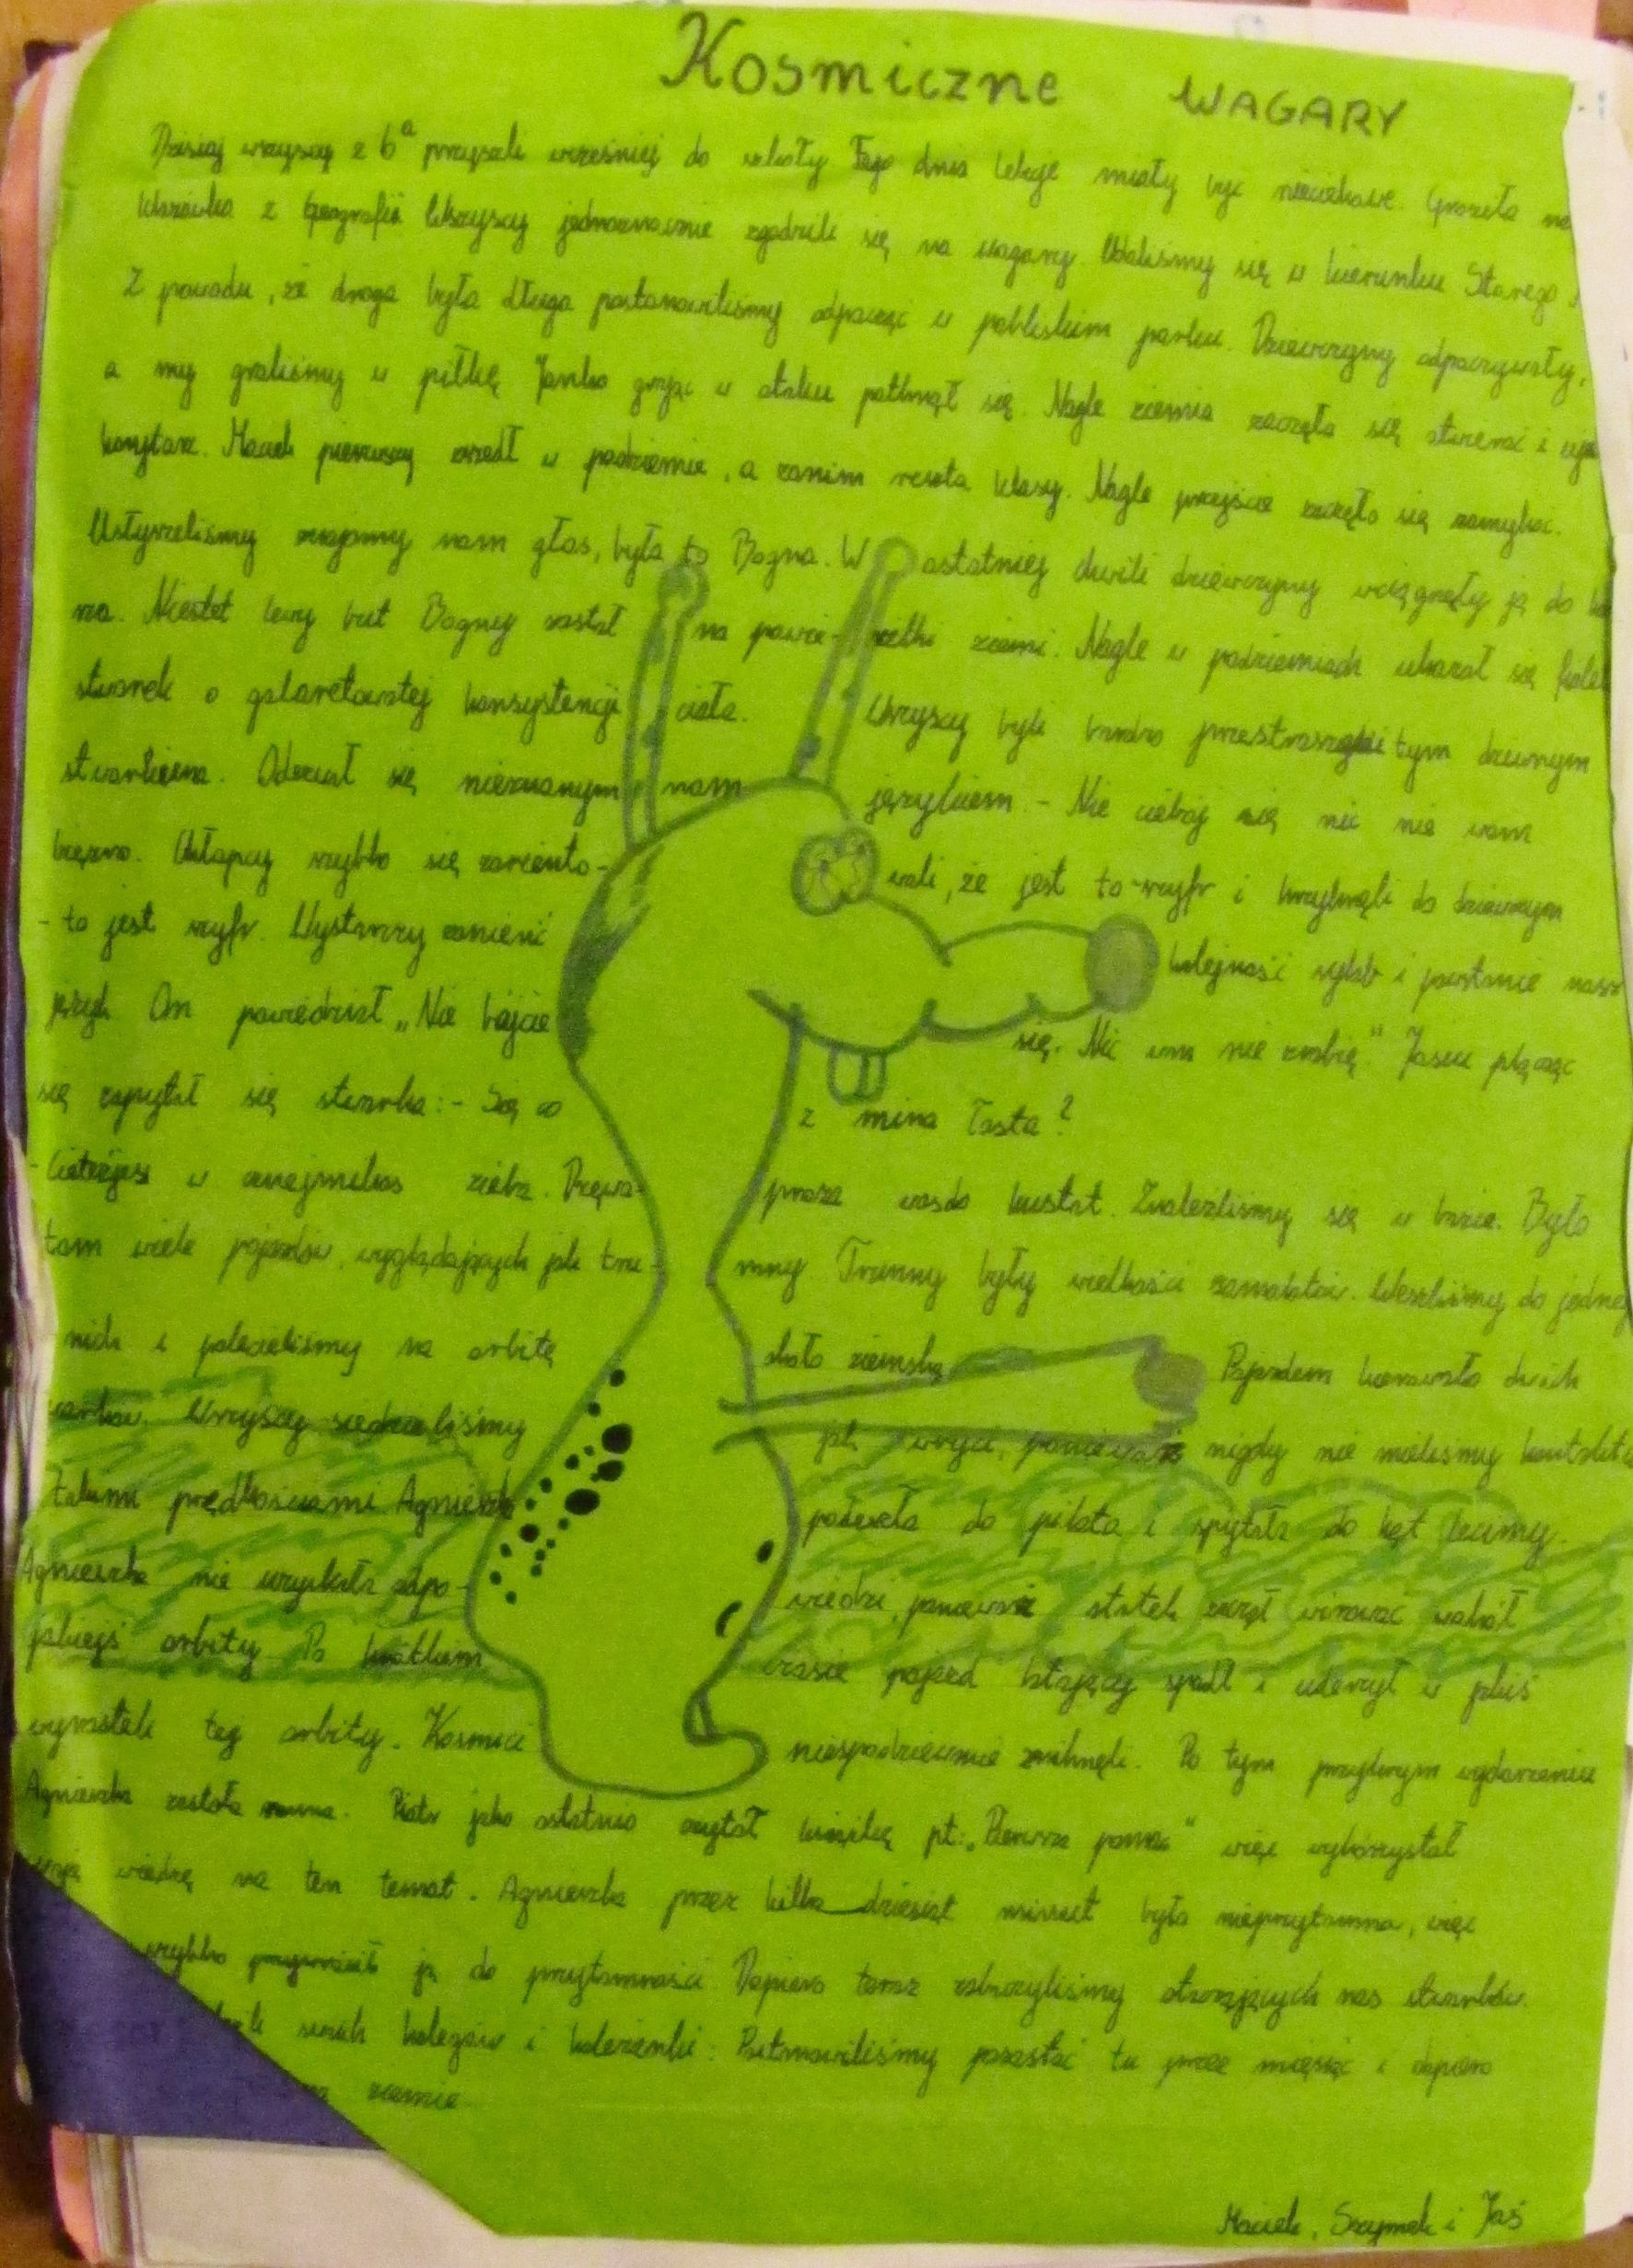 Kosmiczne WAGARY
Dzisiaj wszyscy z 6a przyszli wcześniej do szkoły. Tego dnia lekcje miały być nieciekawe. Groziła na
klasówka z geografii. Wszyscy jednoznacznie zgodzili się na wagary. Udaliśmy się w kierunku Starego
Z powodu, że droga była długa postanowiliśmy odpocząć w pobliskim parku. Dziewczyny odpoczywały,
a my graliśmy w piłkę. Janko grając w ataku potknął się. Nagle ziemia zaczęła się otwierać i uja
korytarz. Maciek pierwszy wszedł w podziemie, a zanim reszta klasy. Nagle przejście zaczęło się zamykać.
Usłyszeliśmy znajomy nam głos, była to Bogna. W ostatniej chwili dziewczyny wciągnęły ją do
na. Niestet lewy but Bogny został na powie-rzchki ziemi. Nagle w podziemiach ukazał się
stworek o galaretowatej konsystencji ciała. Wszyscy byli bardzo przestraszeni tym dziwnym
stworkiem. Odezwał się nieznanym nam językiem. - Nie ciebój się nic nie wam
bięzro. Chłopcy szybko się zoriento- wali, że jest to szyfr i krzyknęli do dziewczyn
- to jest szyfr. Wystarczy zmienić kolejność sylab i powstanie nasz
język. On powiedział „Nie bójcie się. Nic wam nie zrobię." Jasiu plącząc
się zapytał się stworka: - Są co z mina łosta?
w zieba. Znaleźliśmy się w bazie. Było
tam wiele pojazdów, wyglądających jak tru- mny. Trumny były wielkości samolotów. Weszliśmy do jednej
nich i polecieliśmy na orbitę około ziemską. Pojazdem kierowało dwóch
Wszyscy siedzieliśmy jak wryci, ponieważ nigdy nie mieliśmy kontaktu
z takimi prędkościami. Agnieszka podeszła do pilota i spytała do kąt lecimy.
Agnieszka nie uzyskała odpo- wiedzi, ponieważ statek zaczął wirować wokół
jakiejś orbity. Po krótkim czasie pojazd latający spadł i uderzył w jakiś
wyrostek tej orbity. Kosmici niespodziewanie zniknęli. Po tym przykrym wydarzeniu
Agnieszka została ranna. Piotr jako ostatnio czytał książkę pt: „Pierwsza pomoc" więc wykorzystał
swoją wiedzę na ten temat. Agnieszka przez kilka dziesiąt minut była nieprzytomna, więc
szybko przywrócił ją do przytomności. Dopiero teraz zobaczyliśmy otaczających nas stworków.
swoich kolegów i koleżanki. Postanowiliśmy pozostać tu przez miesiąc i dopiero
na ziemię.
Maciek, Szymek i Jaś